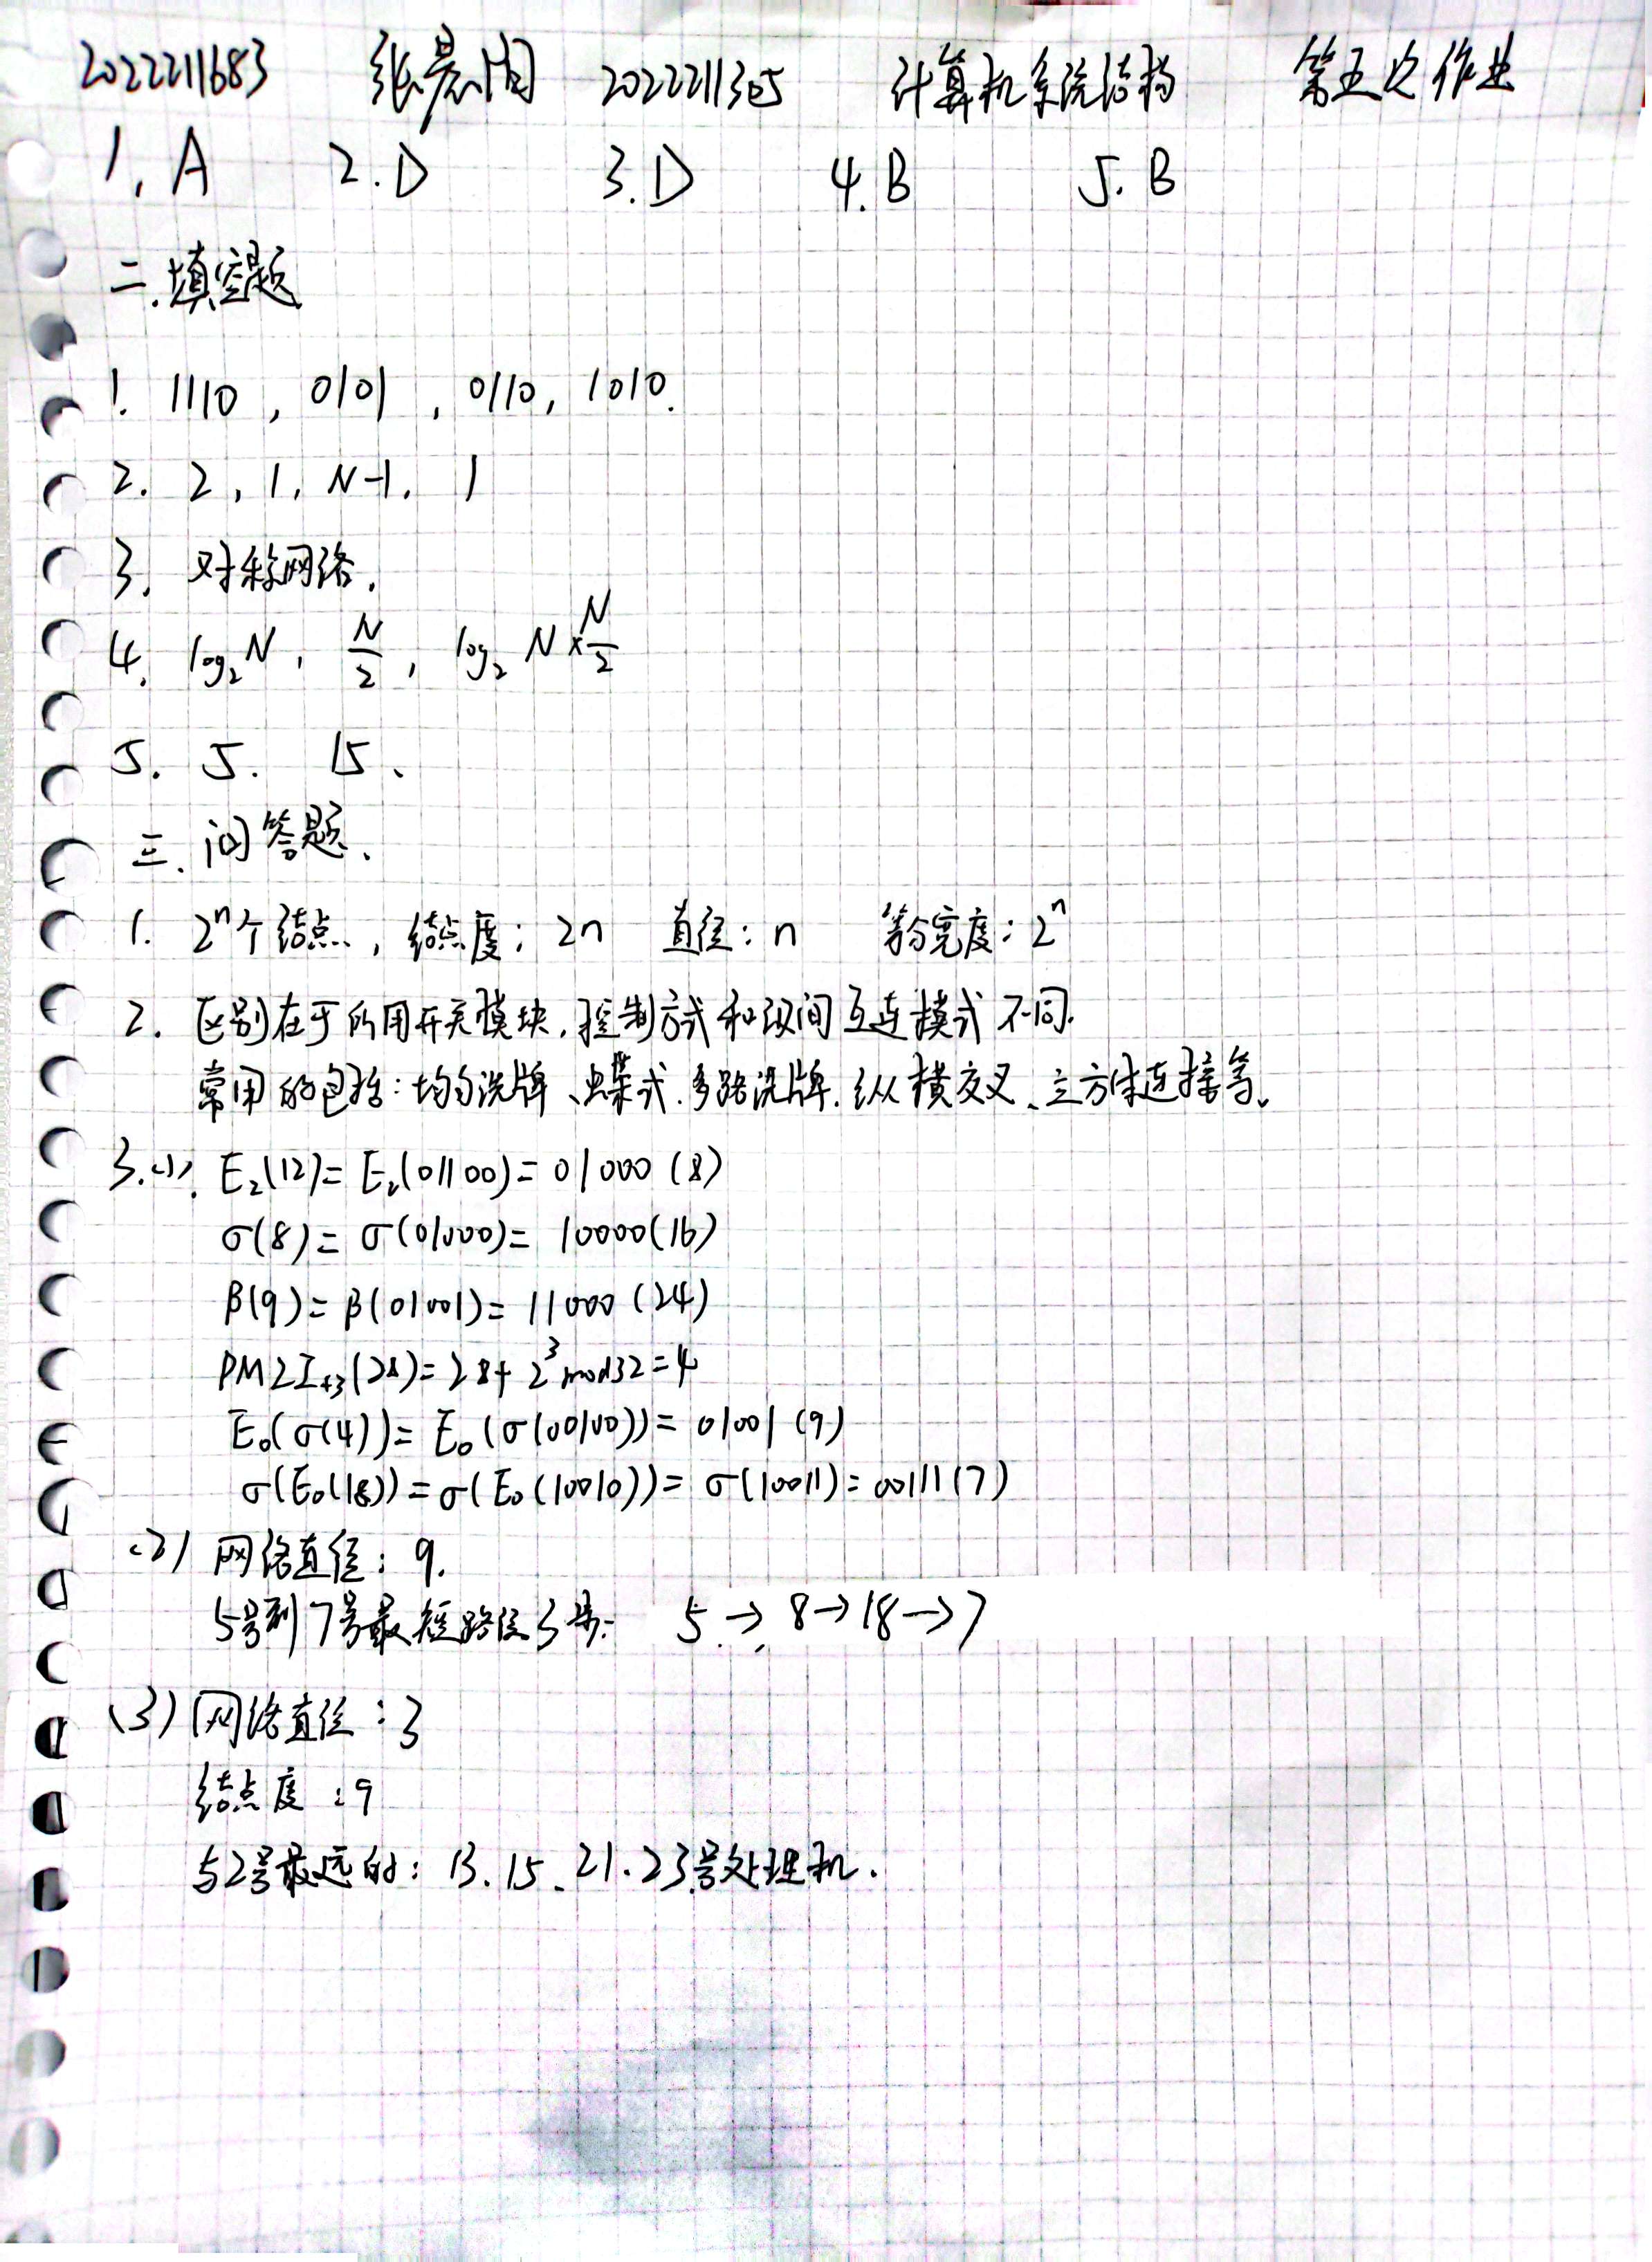 2022211683 张晨阳 2022211305 计算机系统结构 第五次作业
1. A 2. D 3. D 4. B 5. B
二.填空题
1. 1110 , 0101 , 0110, 1010.
2. 2, 1, N-1, 1
3. 对称网络.
4. log₂N , N/2 , log₂ N × N/2
5. 5. 15、
三.问答题、
1. 2ⁿ个结点, 结点度: 2n 直径: n 等分宽度: 2ⁿ
2. 区别在于所用开关模块,控制方式和级间互连模式不同.
常用的包括:均匀洗牌、蝶式.多路洗牌.纵横交叉、立方体连接等。
3.(1). E₂(12)= E₂(01100)= 01000 (8)
σ(8)= σ(01000)= 10000(16)
β(9)= β(01001)= 11000 (24)
PM2I₊₃(28)= 28+ 2³mod32=4
E₀(σ(4))= E₀(σ(00100))= 01001 (9)
σ(E₀(18))=σ(E₀(10010))= σ(10011)= 00111(7)
(2) 网络直径: 9.
5号到7号最短路径3步: 5 → 8→18→7
(3) 网络直径:3
结点度:9
与2号最远的: 13.15、21.23号处理机.